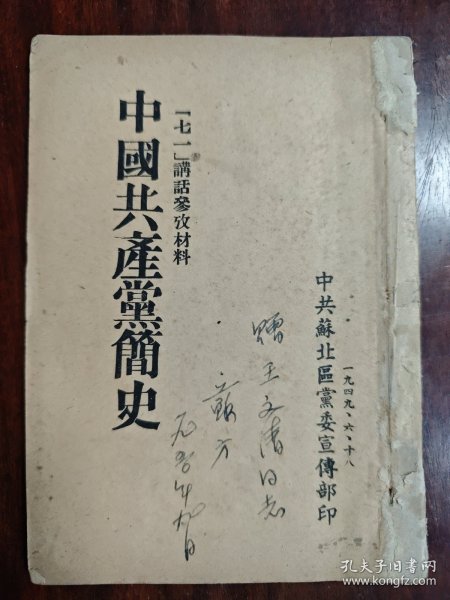 一九四九、六、十八
中共蘇北區黨委宣傳部印
贈王文清同志
「七一」講話參攷材料
中國共產黨簡史
孔夫子旧书网
www.kongfz.com